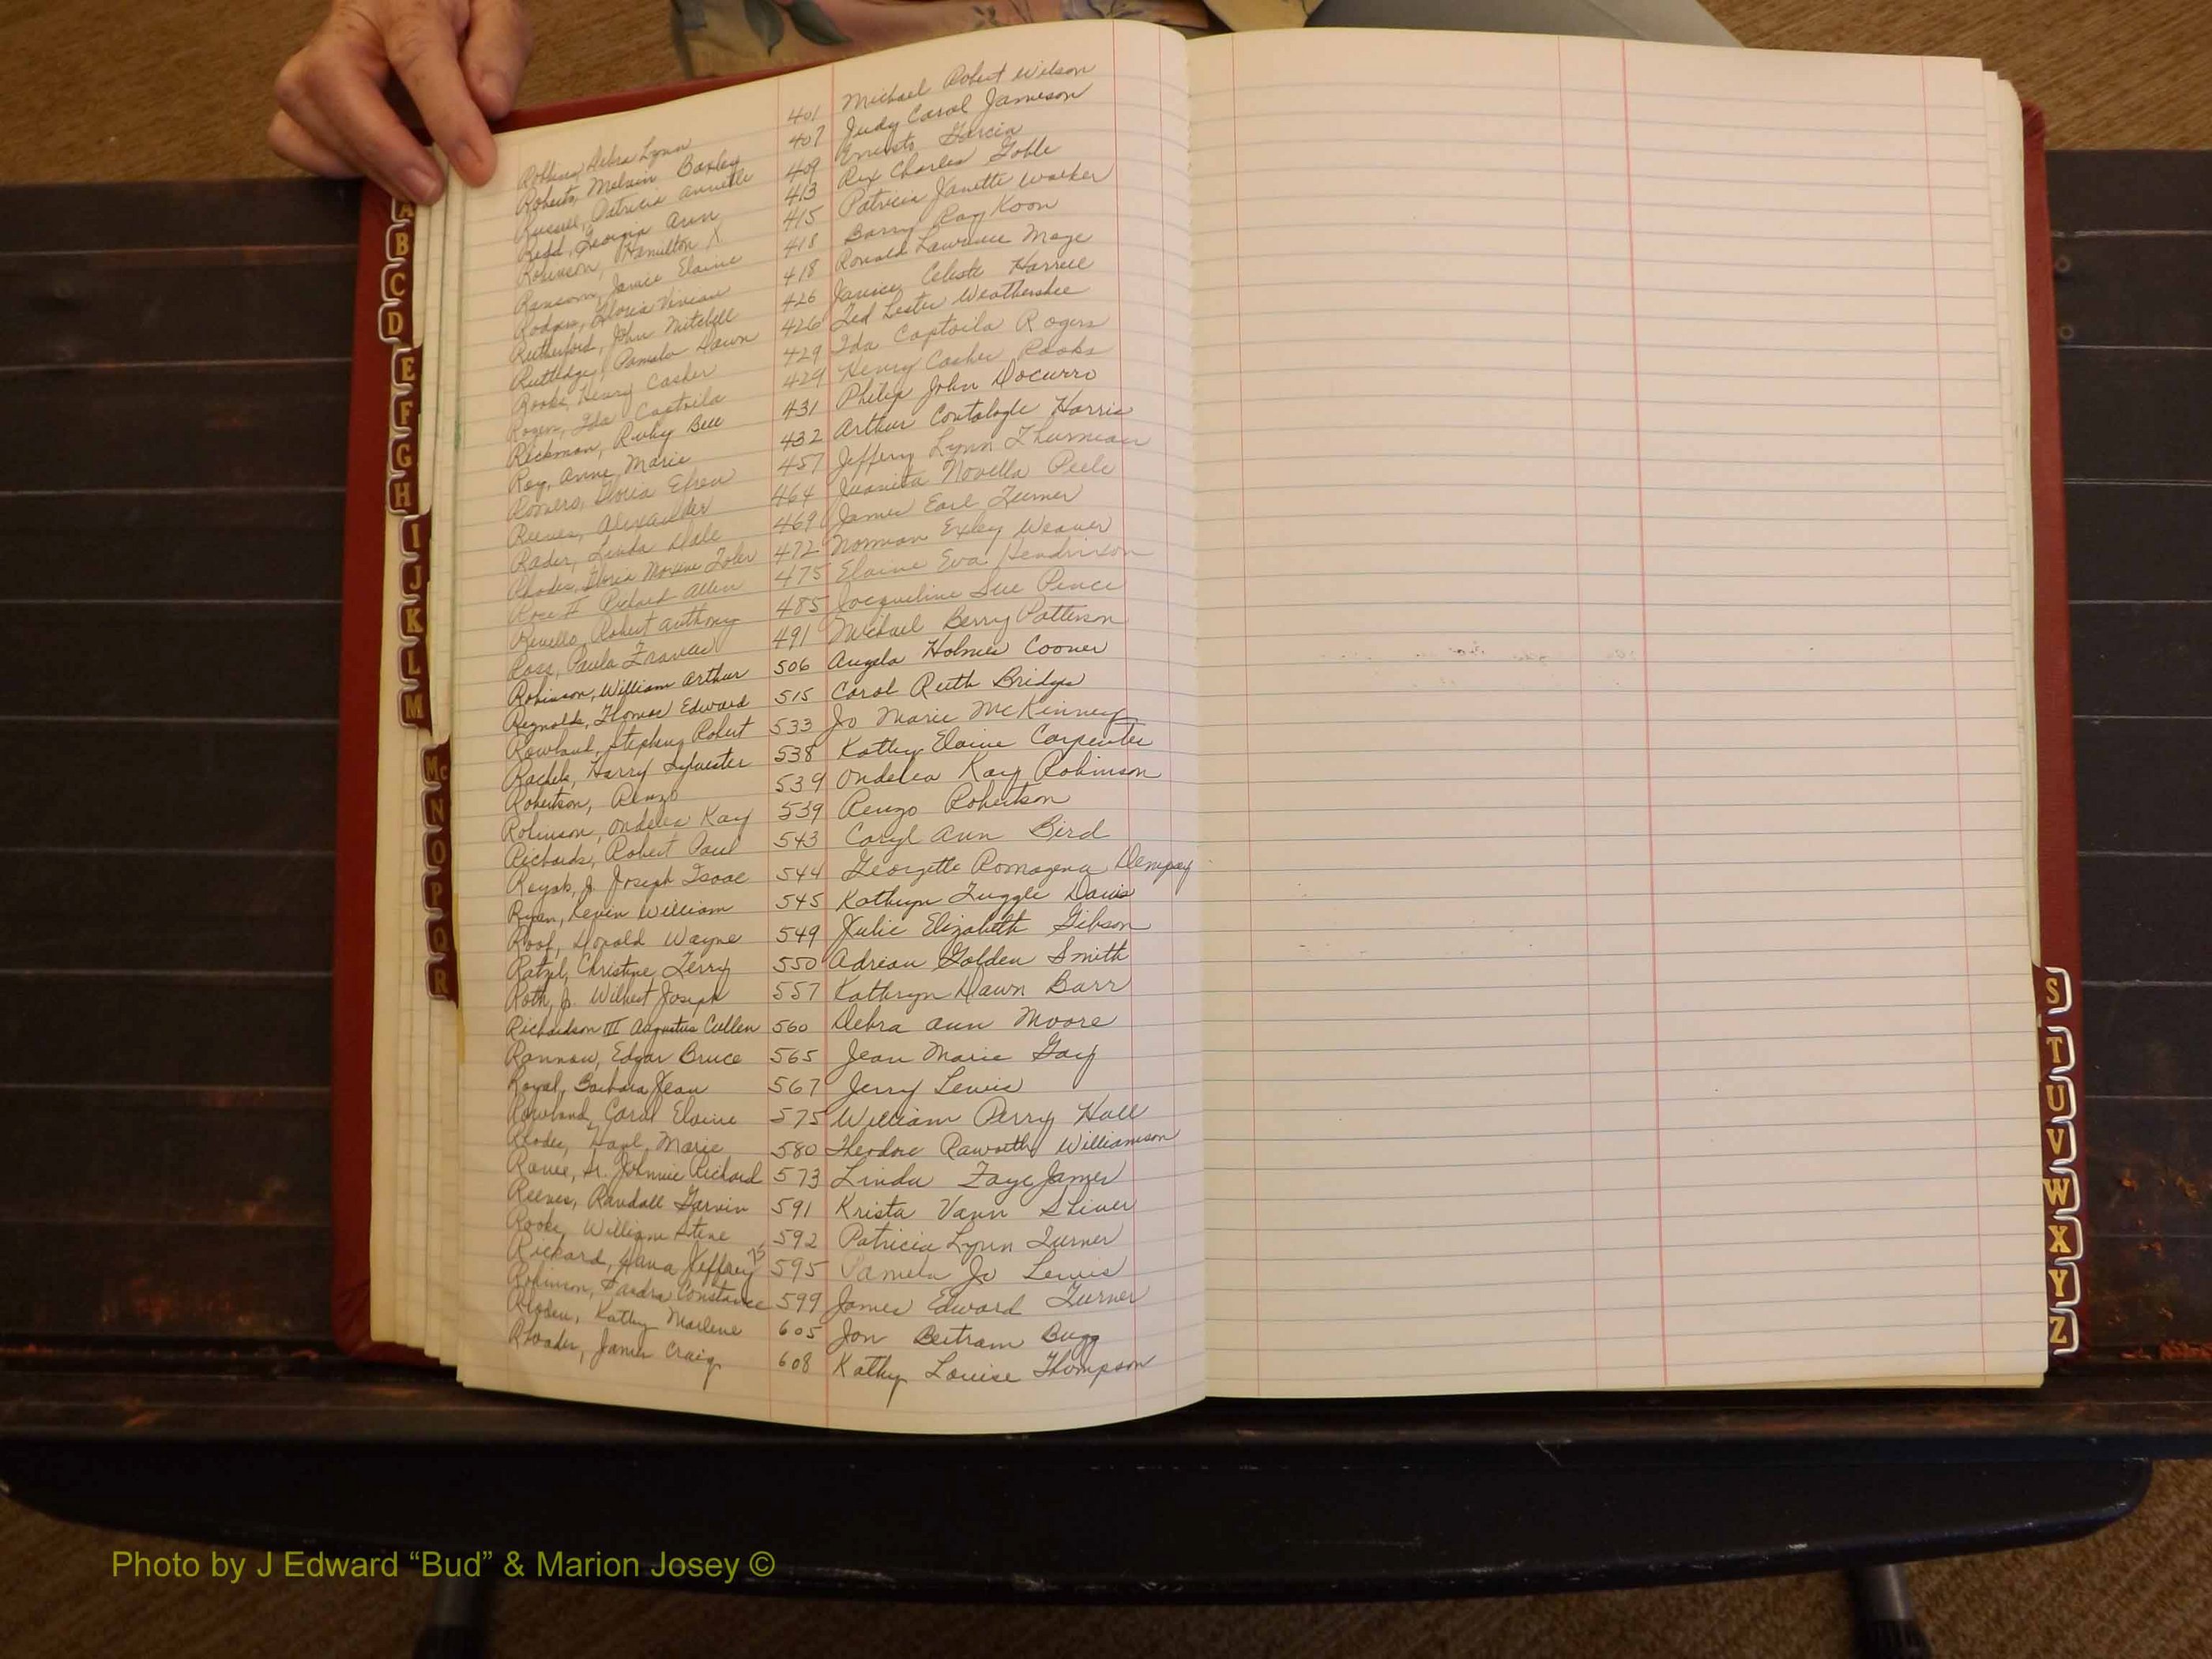 Robbins, Debra Lynn 401 Michael Robert Wilson
Roberts, Melvin Baxley 407 Judy Carol Jameson
Russell, Patricia Annette 409 Ernesto Garcia
Redd, Georgia Ann 413 Rex Charles Goble
Robinson, Hamilton X 415 Patricia Janette Walker
Ransom, Janice Elaine 418 Barry Ray Koon
Rodgers, Gloria Vivian 418 Ronald Lawrence Moge
Rutherford, John Mitchell 426 Janice Celeste Harrell
Rutledge, Pamela Dawn 426 Ted Lester Weathersbee
Rooks, Henry Casher 429 Ida Captoila Rogers
Rogers, Ida Captoila 429 Henry Casher Rooks
Rickman, Ruby Bell 431 Philip John Docurro
Roy, Anne Marie 432 Arthur Harris
Romero, Gloria Efren 457 Jeffery Lynn Thurman
Reeves, Alexander 464 Juanita Novella Peele
Rader, Linda Dale 469 James Earl Turner
Rhodes, Gloria Maxine Toler 472 Norman Exley Weaver
Rose II Richard Allen 475 Elaine Eva Hendrixson
Revello, Robert Anthony 485 Jacqueline Sue Pence
Ross, Paula Frances 491 Michael Berry Patterson
Robinson, William Arthur 506 Angela Holmes Cooner
Reynolds, Thomas Edward 515 Carol Ruth Bridges
Rowland, Stephen Robert 533 Jo Marie McKinney
Rachels, Harry Sylvester 538 Kathy Elaine Carpenter
Robertson, Renzo 539 Ondelea Kay Robinson
Robinson, Ondelea Kay 539 Renzo Robertson
Richards, Robert Paul 543 Caryl Ann Bird
Royals, Jr. Joseph Isaac 544 Georgette Romagena Dempsey
Ryan, Kevin William 545 Kathryn Tuggle Davis
Roof, Donald Wayne 549 Julie Elizabeth Gibson
Ratzel, Christine Terry 550 Adrian Golden Smith
Roth, Jr. Wilbert Joseph 557 Kathryn Dawn Barr
Richardson III Augustus Cullen 560 Debra Ann Moore
Rannow, Edgar Bruce 565 Jean Marie Gay
Royal, Barbara Jean 567 Jerry Lewis
Rowland, Carol Elaine 575 William Perry Hall
Rhodes, Marie 580 Theodore Raworth Williamson
Ranee, Sr. Johnnie Richard 573 Linda Faye James
Reeves, Randall Garvin 591 Krista Vann Shiver
Rooks, William Steve 592 Patricia Lynn Turner
Rickard, Dana Jeffrey 595 Pamela Jo Lewis
Robinson, Sandra Constance 599 James Edward Turner
Rhoden, Kathy Marlene 605 Jon Bertram Bugg
Rhoades, James Craig 608 Kathy Louise Thompson
A
B
C
D
E
F
G
H
I
J
K
L
M
Mc
N
O
P
Q
R
S
T
U
V
W
X
Y
Z
Photo by J Edward “Bud” & Marion Josey ©